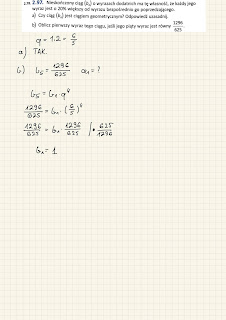 2.57. Nieskończony ciąg (bₙ) o wyrazach dodatnich ma tę własność, że każdy jego
wyraz jest o 20% większy od wyrazu bezpośrednio go poprzedzającego.
a) Czy ciąg (bₙ) jest ciągiem geometrycznym? Odpowiedź uzasadnij.
b) Oblicz pierwszy wyraz tego ciągu, jeśli jego piąty wyraz jest równy 1296/625.
q = 1.2 = 6/5
a) TAK.
b) b₅ = 1296/625 a₁ = ?
b₅ = b₁ · q⁴
1296/625 = b₁ · (6/5)⁴
1296/625 = b₁ · 1296/625 | · 625/1296
b₁ = 1